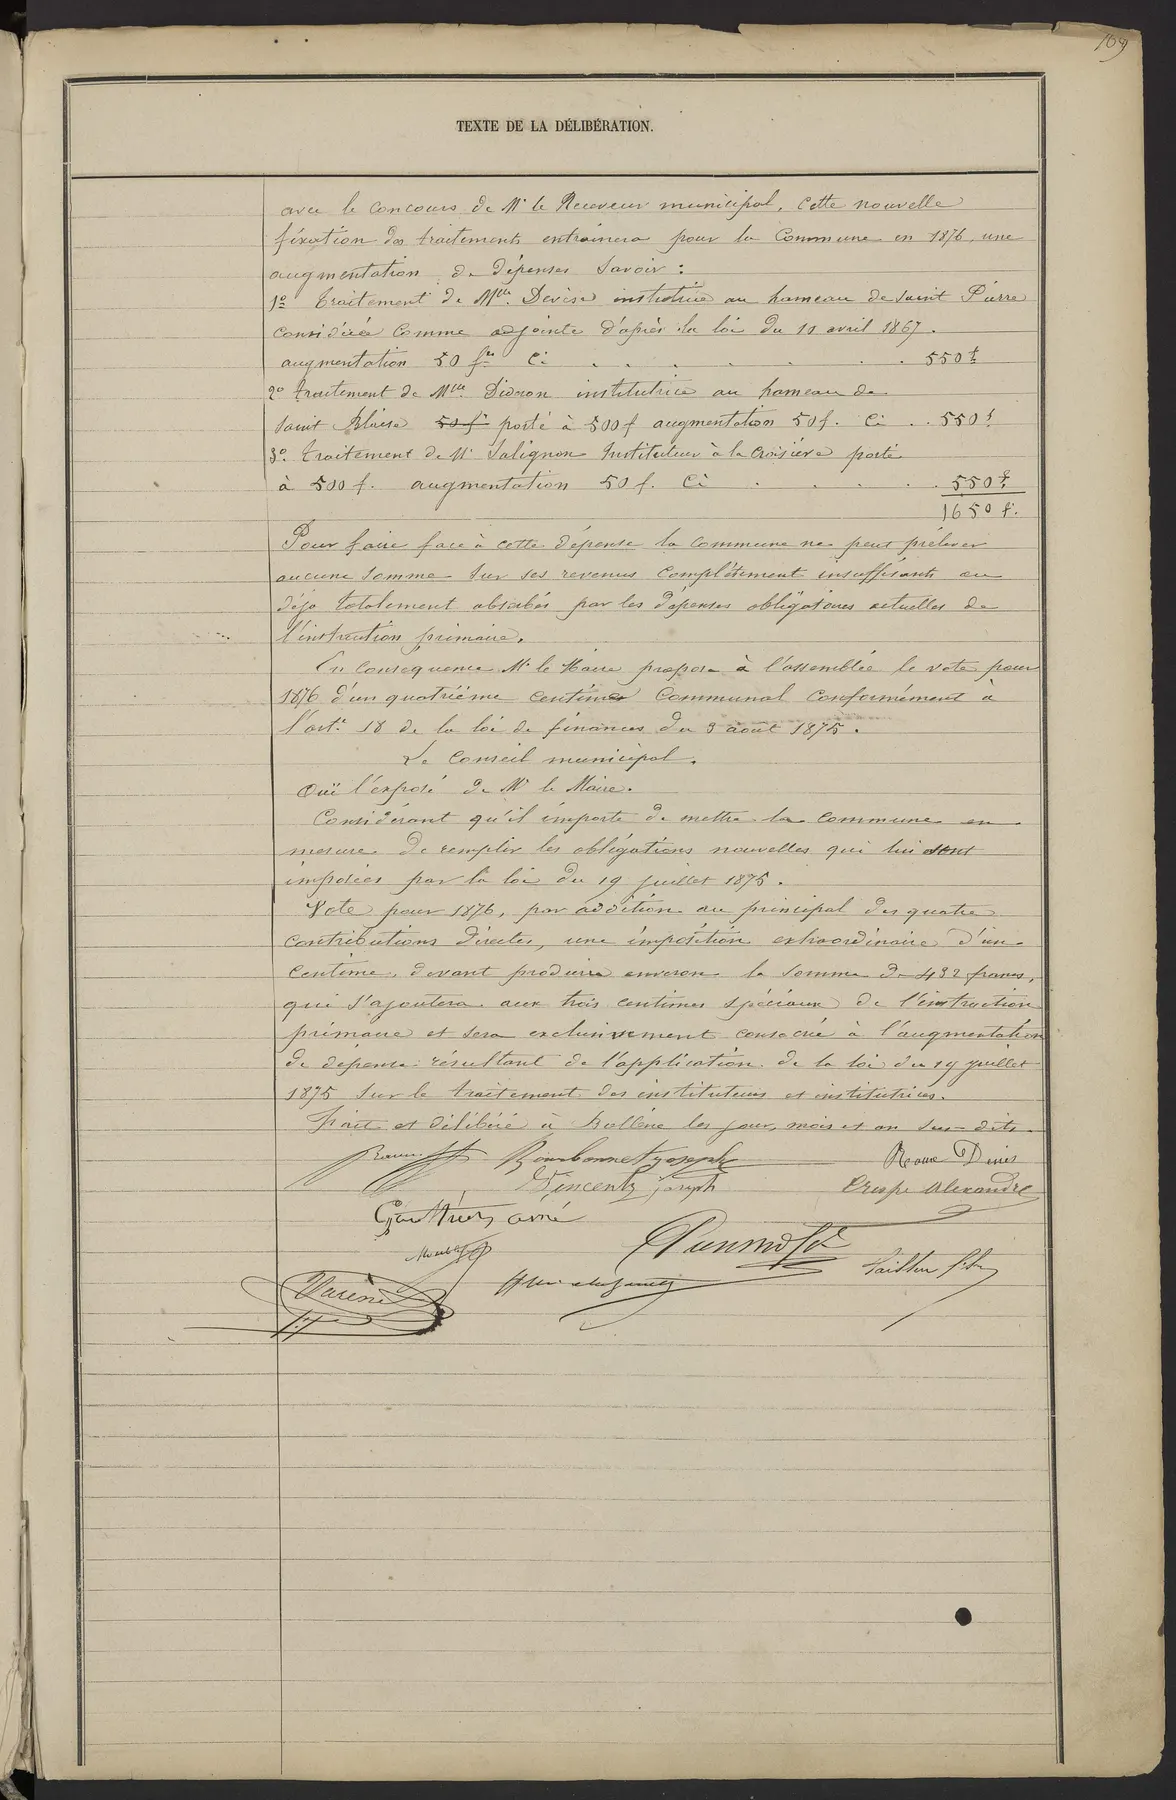 169
TEXTE DE LA DÉLIBÉRATION.
avec le concours de Mr le Receveur municipal, cette nouvelle
fixation des traitements entrainera pour la Commune en 1876, une
augmentation de dépenses savoir :
1º traitement de Mlle Devise institutrice au hameau de saint Pierre
considérée comme adjointe d'après la loi du 10 avril 1867.
augmentation 50 frs Ci . . . . . . . 550 f
2º traitement de Mlle institutrice au hameau de
saint Blaise 50 f porté à 500 f augmentation 50 f. Ci . . 550 f
3º traitement de Mr Salignon Instituteur à la croisière porté
à 500 f. augmentation 50 f. Ci . . . . . 550 f.
1650 f.
Pour faire face à cette dépense la commune ne peut prélever
aucune somme sur ses revenus complètement insuffisants ou
déjà totalement absorbés par les dépenses obligatoires actuelles de
l'instruction primaire.
En consequence Mr le Maire propose à l'assemblée le vote pour
1876 d'un quatrième centime communal conformément à
l'art. 18 de la loi de finances du 3 août 1875.
Le Conseil municipal.
Ouï l'exposé de Mr le Maire.
Considérant qu'il importe de mettre la commune en
mesure de remplir les obligations nouvelles qui lui sont
imposées par la loi du 19 juillet 1875.
Vote pour 1876, par addition au principal des quatre
contributions directes, une imposition extraordinaire d'un
centime, devant produire environ la somme de 432 francs,
qui s'ajoutera aux trois centimes spéciaux de l'instruction
primaire et sera exclusivement consacré à l'augmentation
de dépense résultant de l'application de la loi du 19 juillet
1875 sur le traitement des instituteurs et institutrices.
Fait et délibéré à Bollène les jour, mois et an sus-dits.
Bourbonnet joseph Roux Denis
Vincent joseph Crespe Alexandre
Gauthier aîné